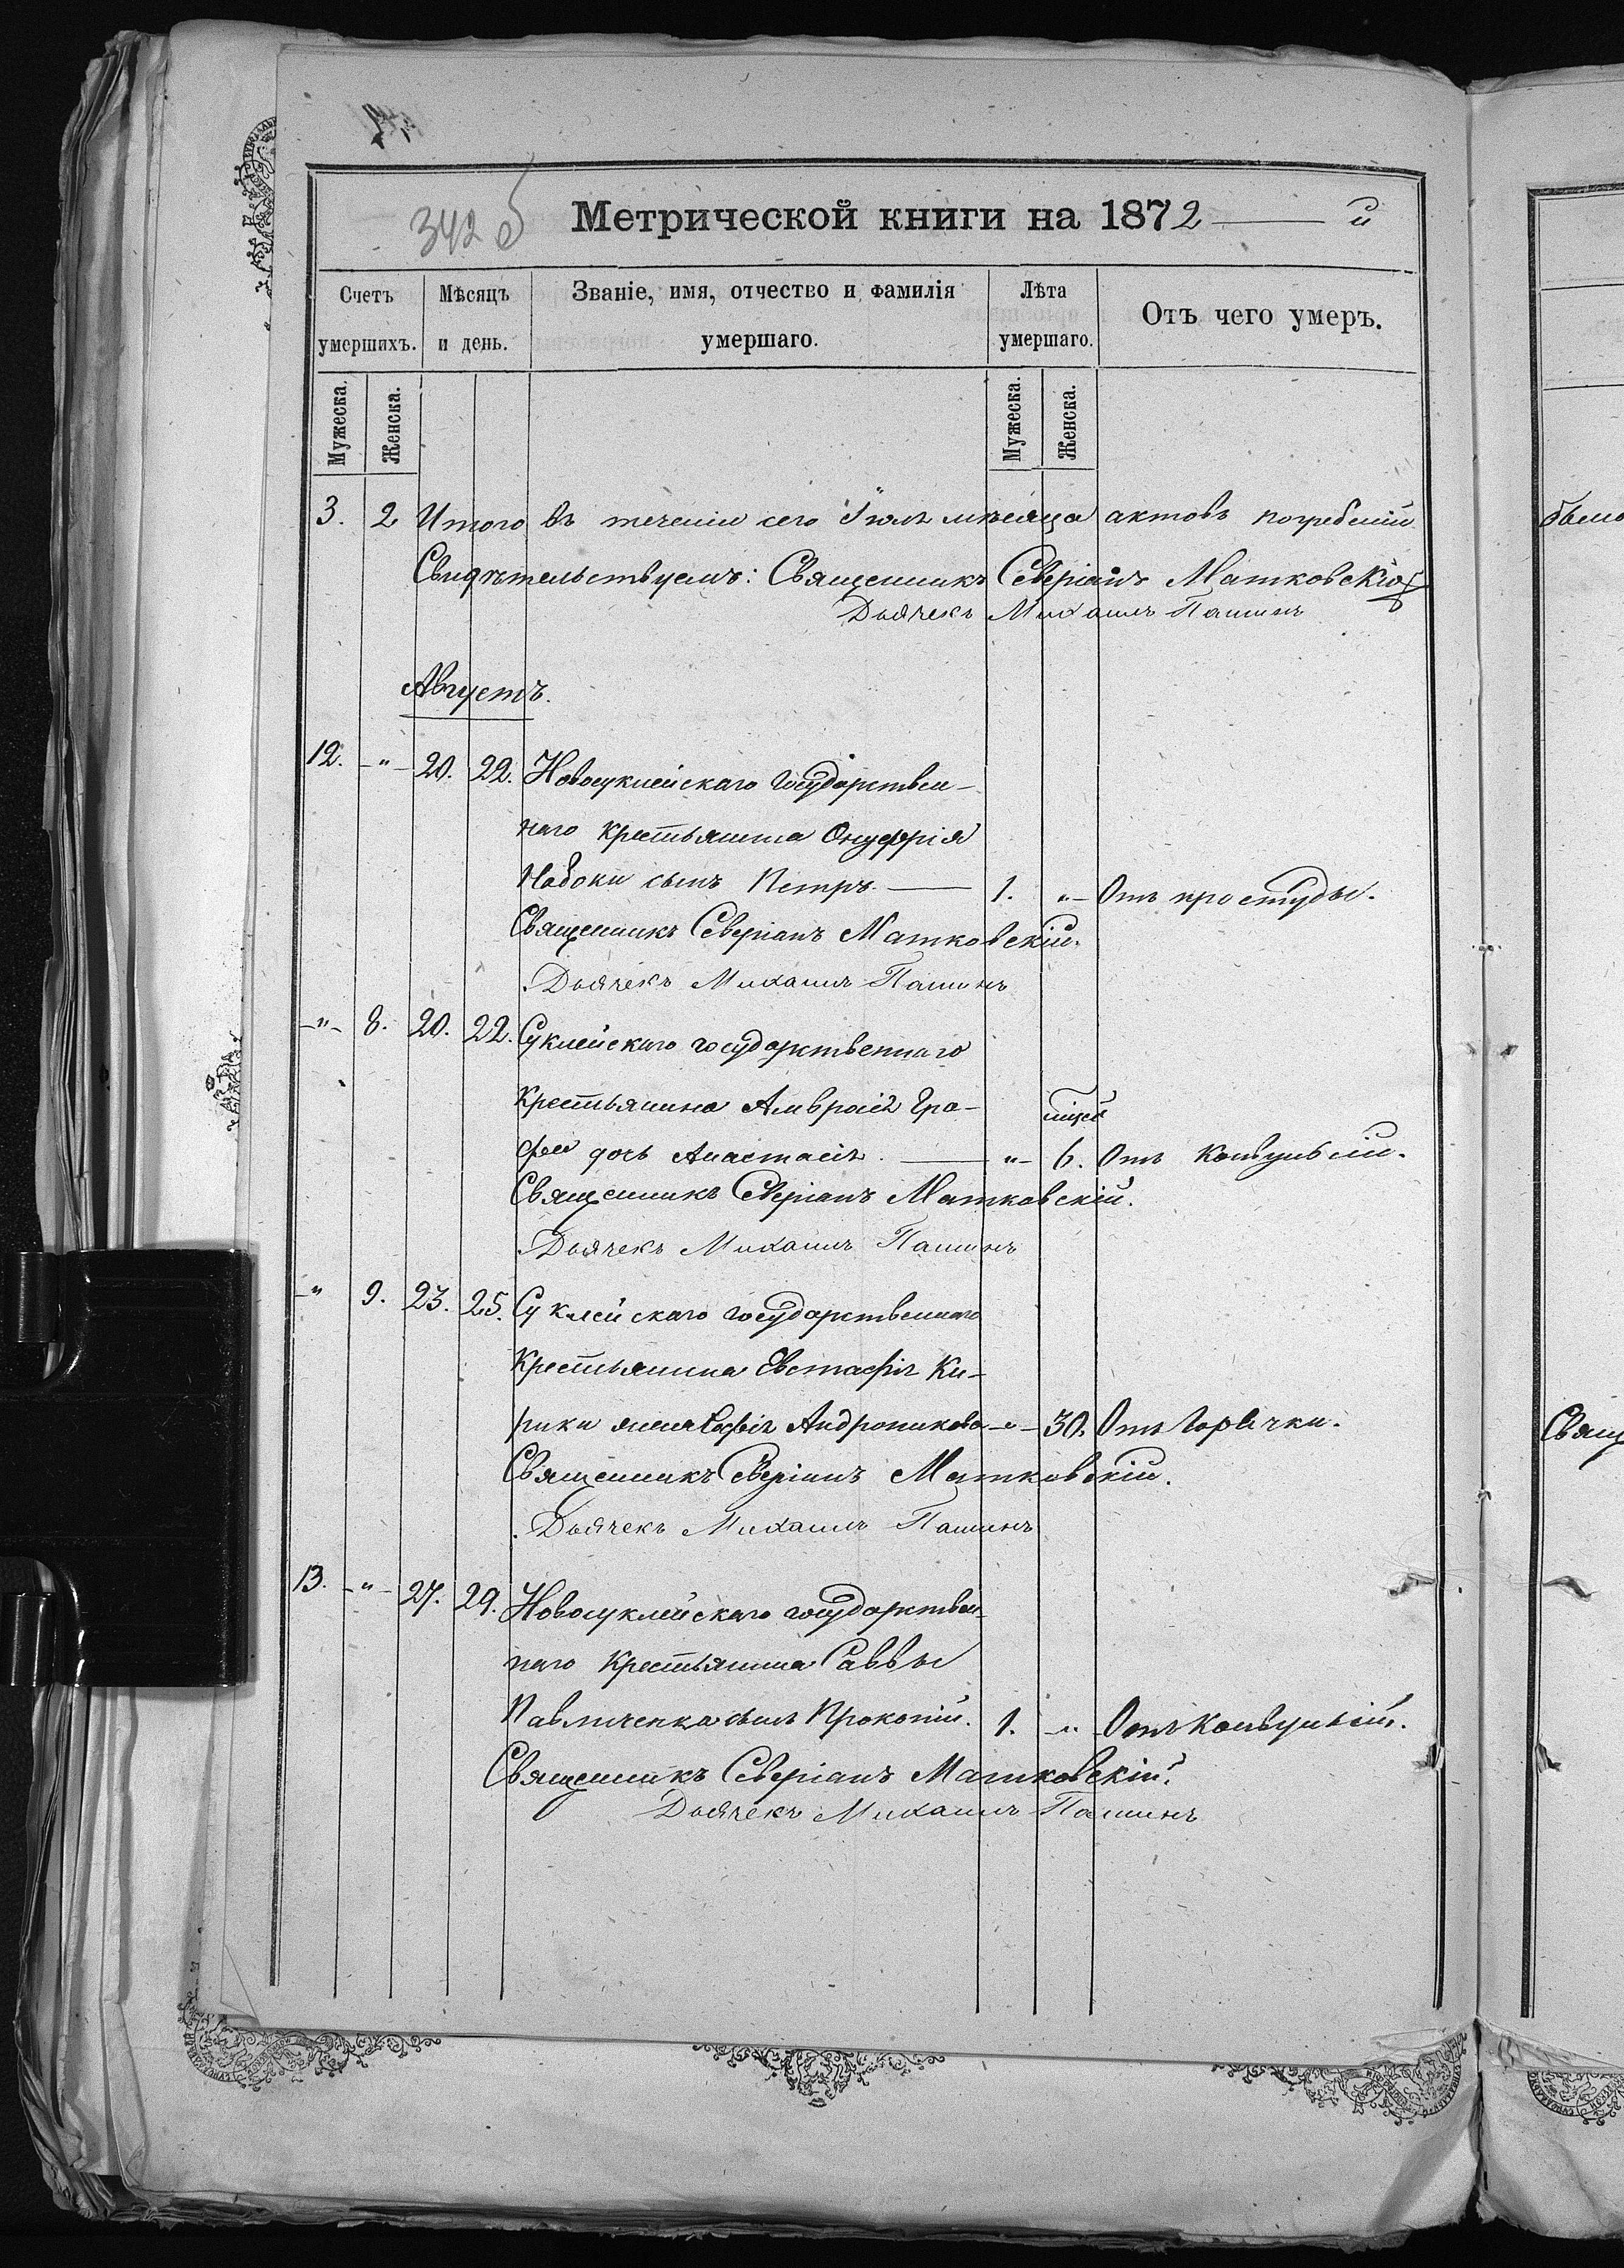 342 б
Метрической книги на 1872 — й
Счетъ умершихъ. Мѣсяцъ и день. Званіе, имя, отчество и фамилія умершаго. Лѣта умершаго. Отъ чего умеръ.
Мужеска. Женска. Мужеска. Женска.
3. 2 Итого въ теченіи сего Іюля мѣсяца актовъ погребеній
Свидѣтельствуемъ: Священникъ Северіанъ Матковскій
Дьячекъ Михаилъ Пашинъ
Августъ.
12. -"- 20. 22. Новосуклейскаго государствен-
наго крестьянина Онуфрія
Набоки сынъ Петръ — 1. "- Отъ простуды.
Священникъ Северіанъ Матковскій.
Дьячекъ Михаилъ Пашинъ
-"- 8. 20. 22. Суклейскаго государственнаго
крестьянина Амвросія Гра-
мѣсяц.
фея дочь Анастасія. — "- 6. Отъ конвульсіи.
Священникъ Северіанъ Матковскій.
Дьячекъ Михаилъ Пашинъ
-" 9. 23. 25. Суклейскаго государственнаго
крестьянина Евстафія Ки-
рики жена Софія Андроникова -"- 30. Отъ горячки.
Священникъ Северіанъ Матковскій.
Дьячекъ Михаилъ Пашинъ
13. -"- 27. 29. Новосуклейскаго государствен-
наго крестьянина Саввы
Павличенка сынъ Прокопій. 1. -" Отъ конвульсій.
Священникъ Северіанъ Матковскій.
Дьячекъ Михаилъ Пашинъ